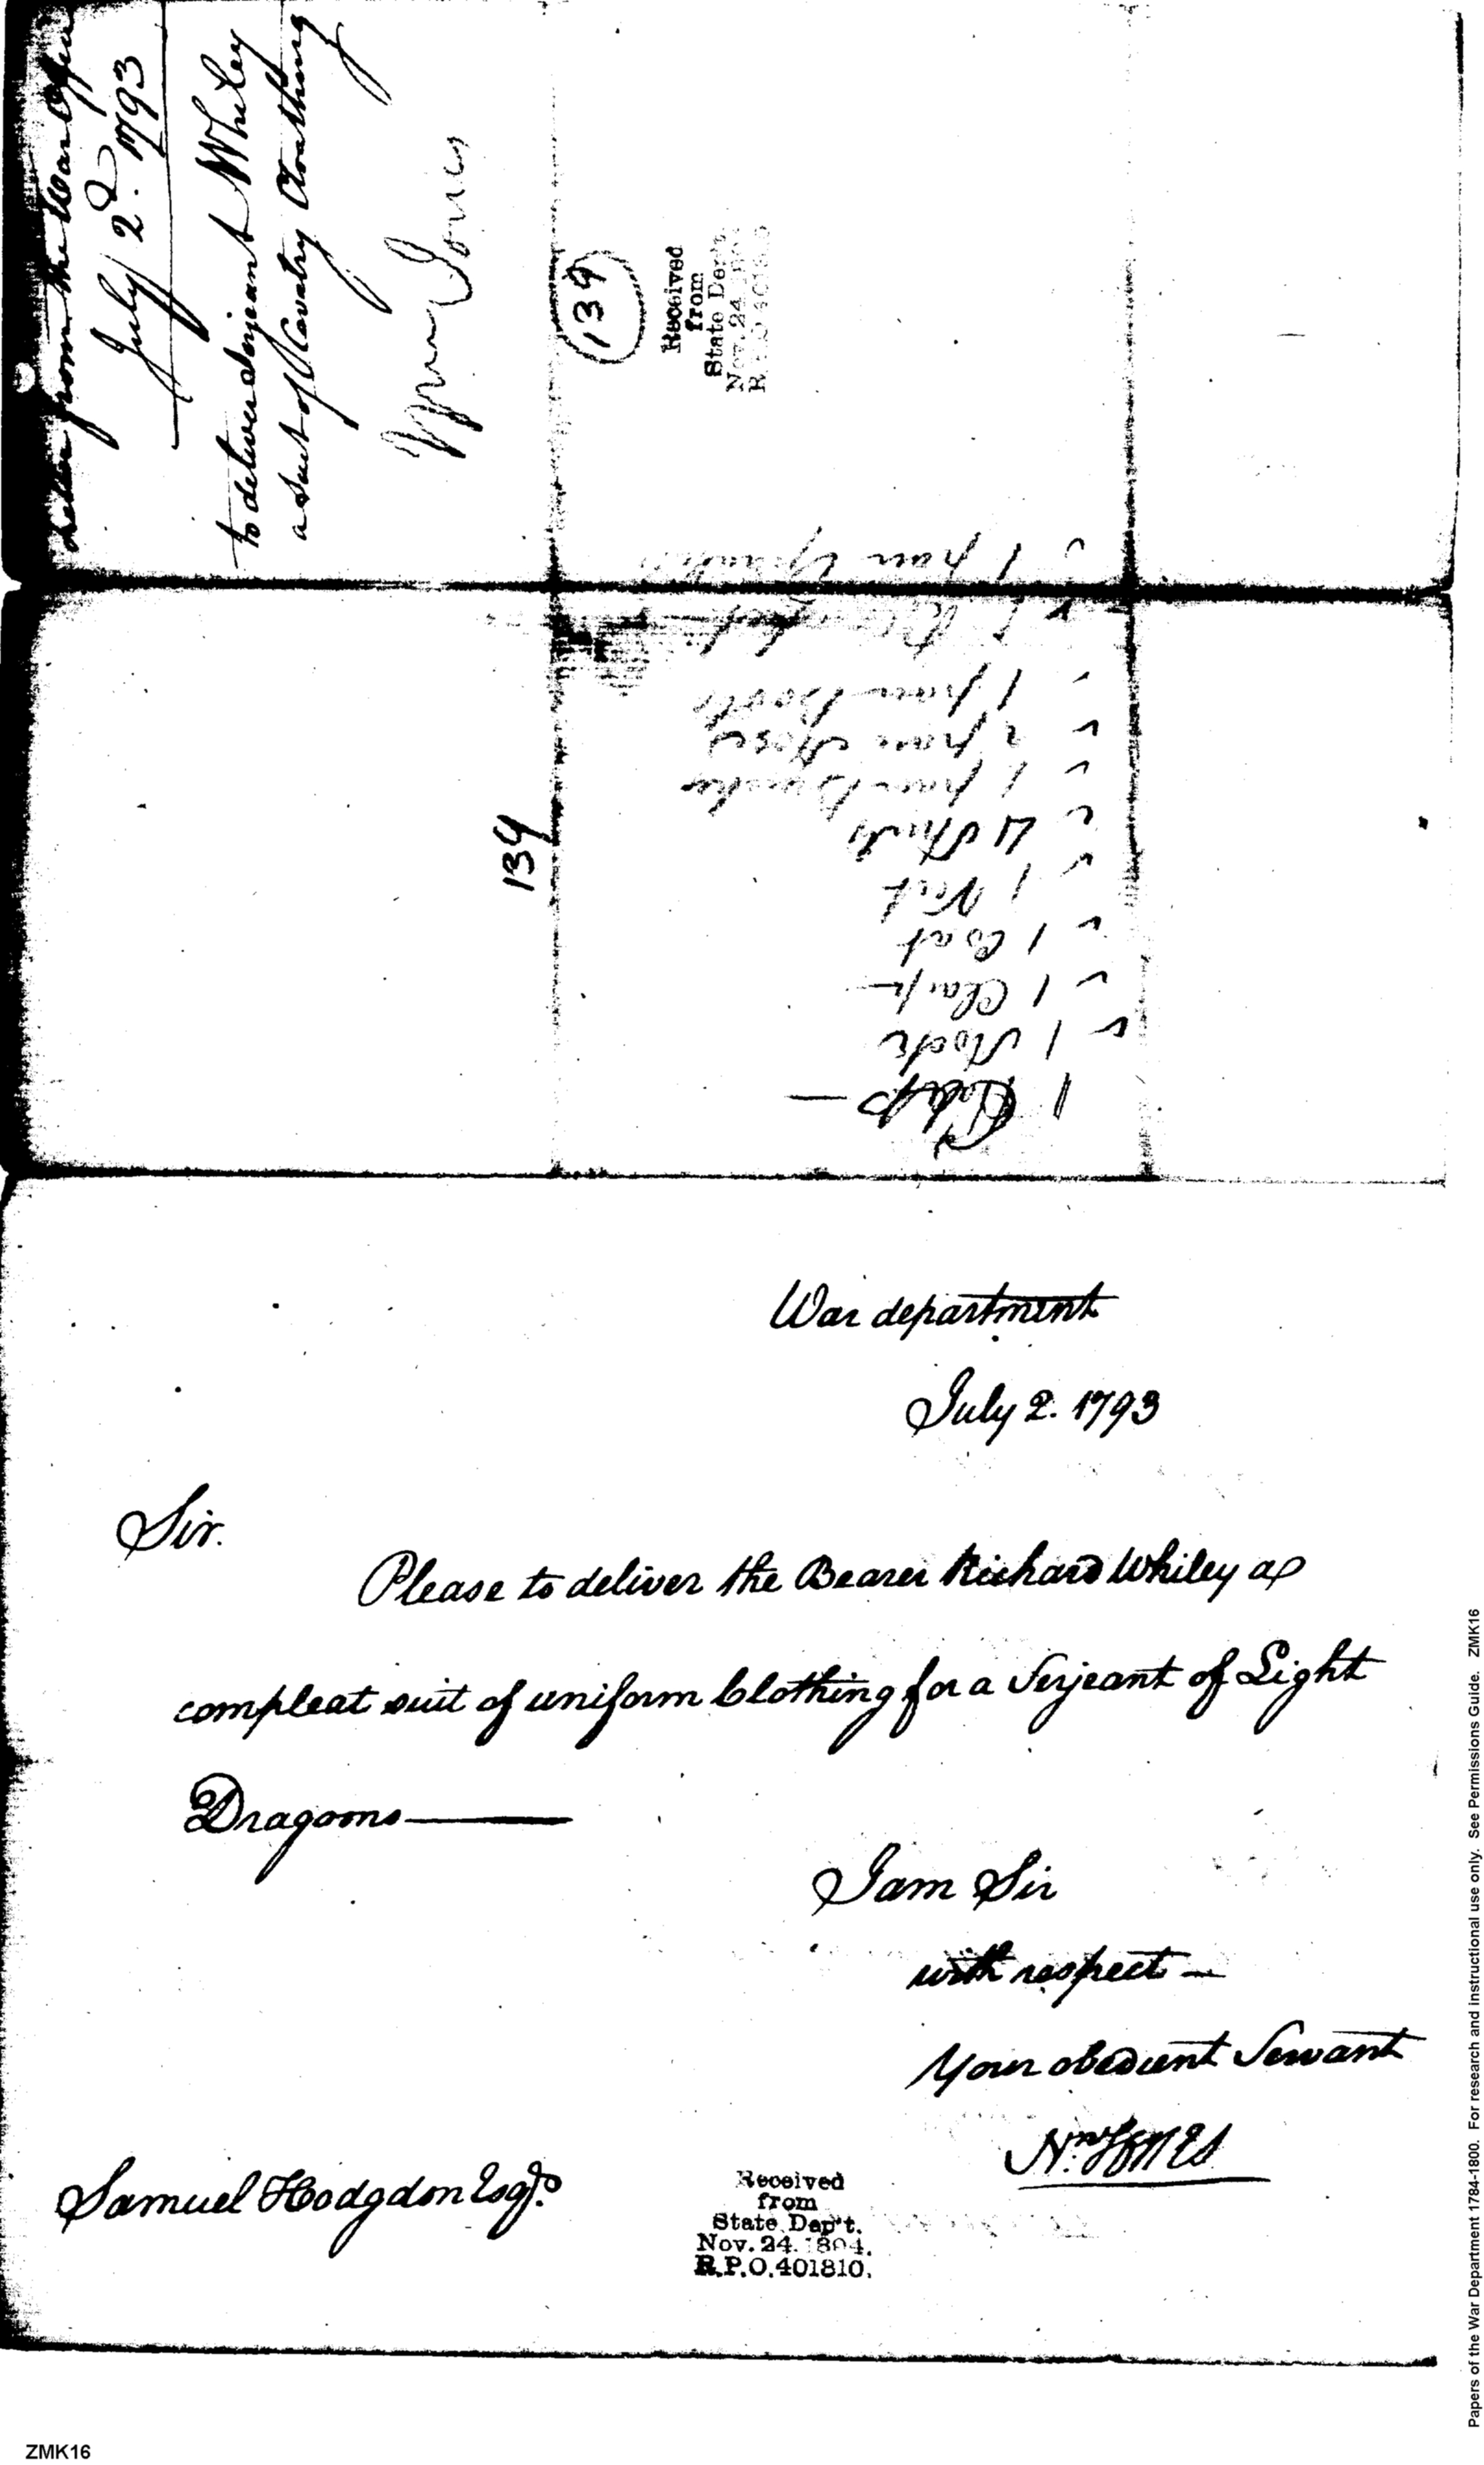 Letter from the War Office
July 2d. 1793
to deliver Serjeant Whiley
a Suit of Cavalry Cloathing
Wm Jones
139
Received
from
State Dep't.
Nov. 24
139
1
1 Stock
1 Clasp
1 Coat
1 Vest
4 Shirts
1 pair
2 pair Hose
1 pair Boots
1
1 pair
War department
July 2. 1793
Sir.
Please to deliver the Bearer Richard Whiley a
compleat suit of uniform Clothing for a Serjeant of Light
Dragoons
I am Sir
with respect
Your obedient Servant
Samuel Hodgdon Esqr.
Received
from
State Dep't.
Nov. 24. 1894.
R.P.O.401810.
Papers of the War Department 1784-1800. For research and instructional use only. See Permissions Guide. ZMK16
ZMK16